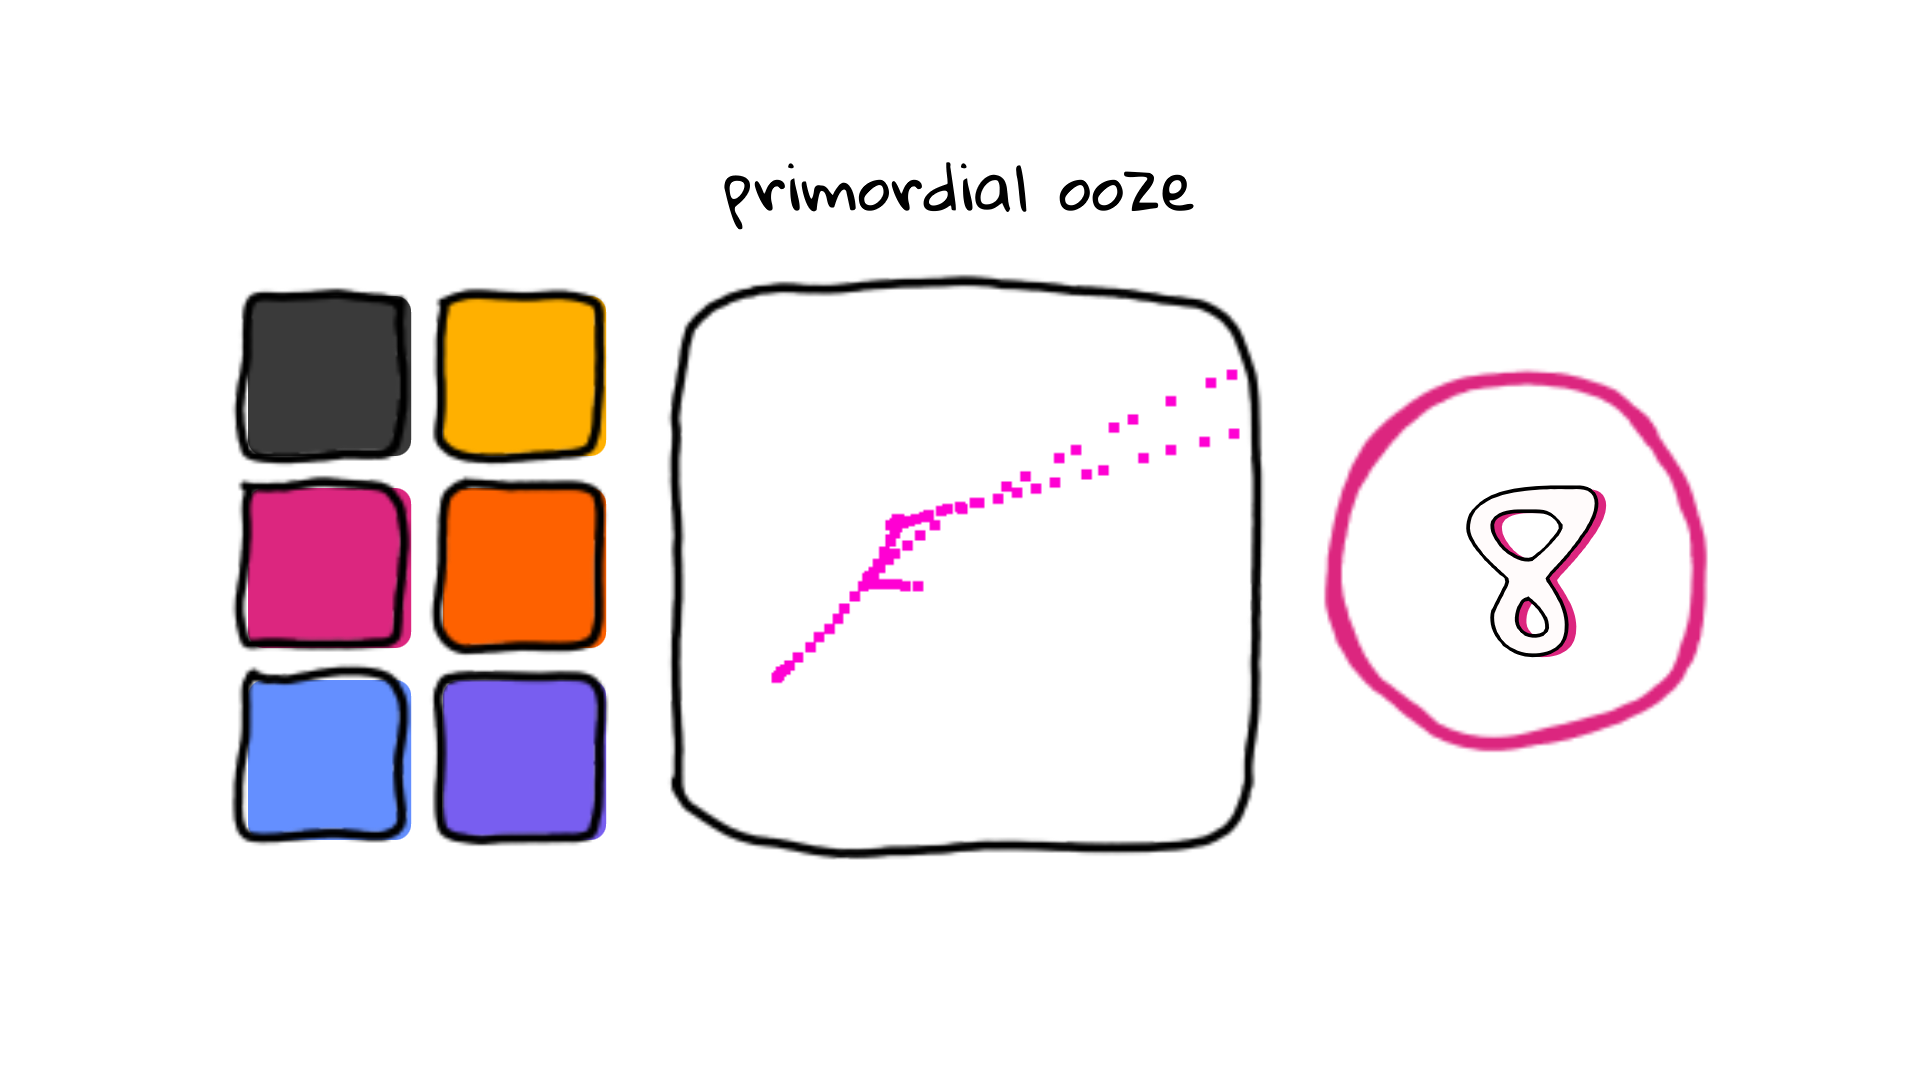 primordial ooze
8